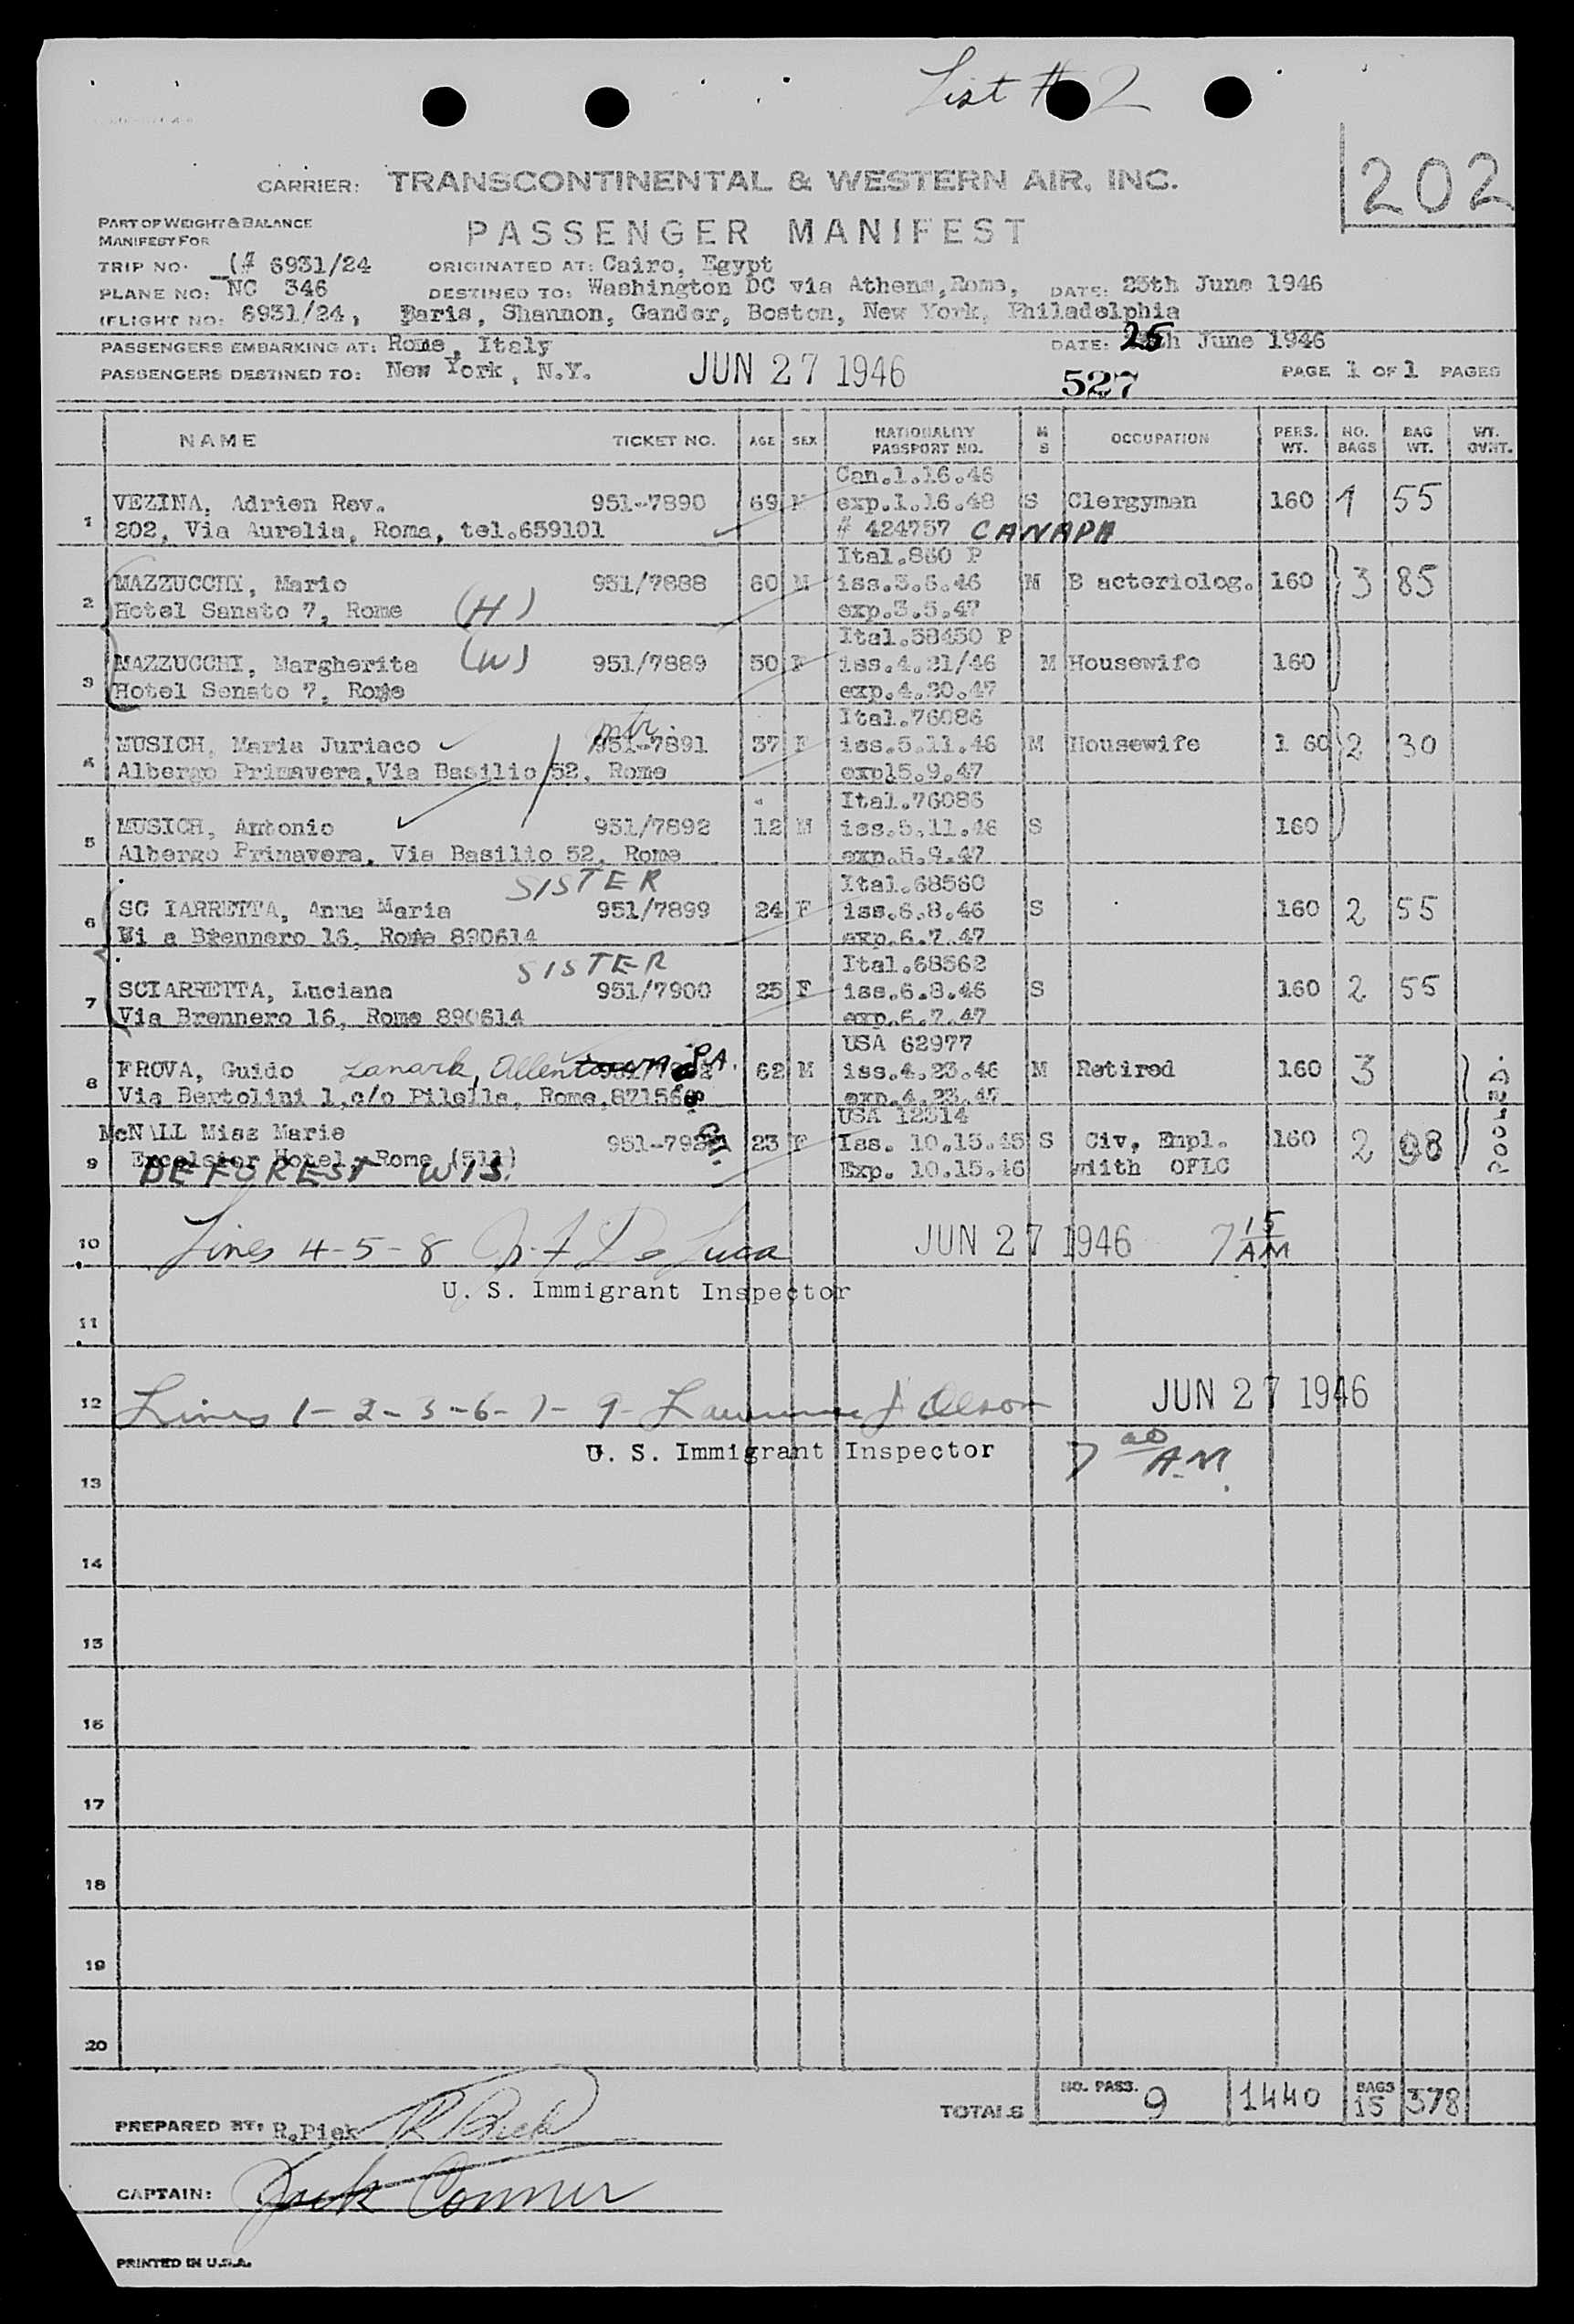 List # 2
202
CARRIER: TRANSCONTINENTAL & WESTERN AIR, INC.
PART OF WEIGHT & BALANCE
MANIFEST FOR
PASSENGER MANIFEST
TRIP NO. (# 6931/24 ORIGINATED AT: Cairo, Egypt
PLANE NO: NC 346 DESTINED TO: Washington DC via Athens,Rome, DATE: 25th June 1946
(FLIGHT NO: 6931/24, Paris, Shannon, Gander, Boston, New York, Philadelphia
PASSENGERS EMBARKING AT: Rome, Italy DATE: 25th June 1946
PASSENGERS DESTINED TO: New York, N.Y. JUN 27 1946 527 PAGE 1 OF 1 PAGES
NAME TICKET NO. AGE SEX NATIONALITY PASSPORT NO. M S OCCUPATION PERS. WT. NO. BAGS BAG WT. WT. OVHT.
Can.1.16.46
1 VEZINA, Adrien Rev. 951-7890 69 M exp.1.16.48 S Clergyman 160 1 55
202, Via Aurelia, Roma, tel.659101 # 424757 CANADA
Ital.860 P
2 MAZZUCCHI, Mario 951/7888 60 M iss.3.6.46 M B acteriolog. 160 3 85
Hotel Sanato 7, Rome (H) exp.3.5.47
Ital.58450 P
3 MAZZUCCHI, Margherita (W) 951/7889 50 F iss.4.21/46 M Housewife 160
Hotel Senato 7, Rome exp.4.20.47
mtr. Ital.76086
4 MUSICH, Maria Juriaco 951-7891 37 F iss.5.11.46 M Housewife 1 60 2 30
Albergo Primavera,Via Basilio 52, Rome expl5.9.47
Ital.76086
5 MUSICH, Antonio 951/7892 12 M iss.5.11.46 S 160
Albergo Primavera, Via Basilio 52, Rome exp.5.9.47
SISTER Ital.68560
6 SC IARRETTA, Anna Maria 951/7899 24 F iss.6.8.46 S 160 2 55
Vi a Brennero 16, Rome 890614 exp.6.7.47
SISTER Ital.68562
7 SCIARRETTA, Luciana 951/7900 25 F iss.6.8.46 S 160 2 55
Via Brennero 16, Rome 890614 exp.6.7.47
USA 62977
8 FROVA, Guido Lanark, Allentown PA. 62 M iss.4.23.46 M Retired 160 3
Via Bertolini 1,c/o Pilella, Rome,87156 exp.4.23.47
USA 12314
McNALL Miss Marie 951-792 23 F Iss. 10.15.45 S Civ, Empl. 160 2 98 POOLED.
9 Excelsior Hotel, Rome (511) Exp. 10.15.46 wiith OFLC
DE FOREST WIS.
10 Lines 4-5-8 De Luca JUN 27 1946 7 15 AM
U. S. Immigrant Inspector
11
12 Lines 1-2-3-6-7-9- Lawrence J Olson JUN 27 1946
U. S. Immigrant Inspector 7 20 A.M.
13
14
15
16
17
18
19
20
TOTALS NO. PASS. 9 1440 BAGS 15 378
PREPARED BY: R.Piek R Piek
CAPTAIN: Jack Conner
PRINTED IN U.S.A.